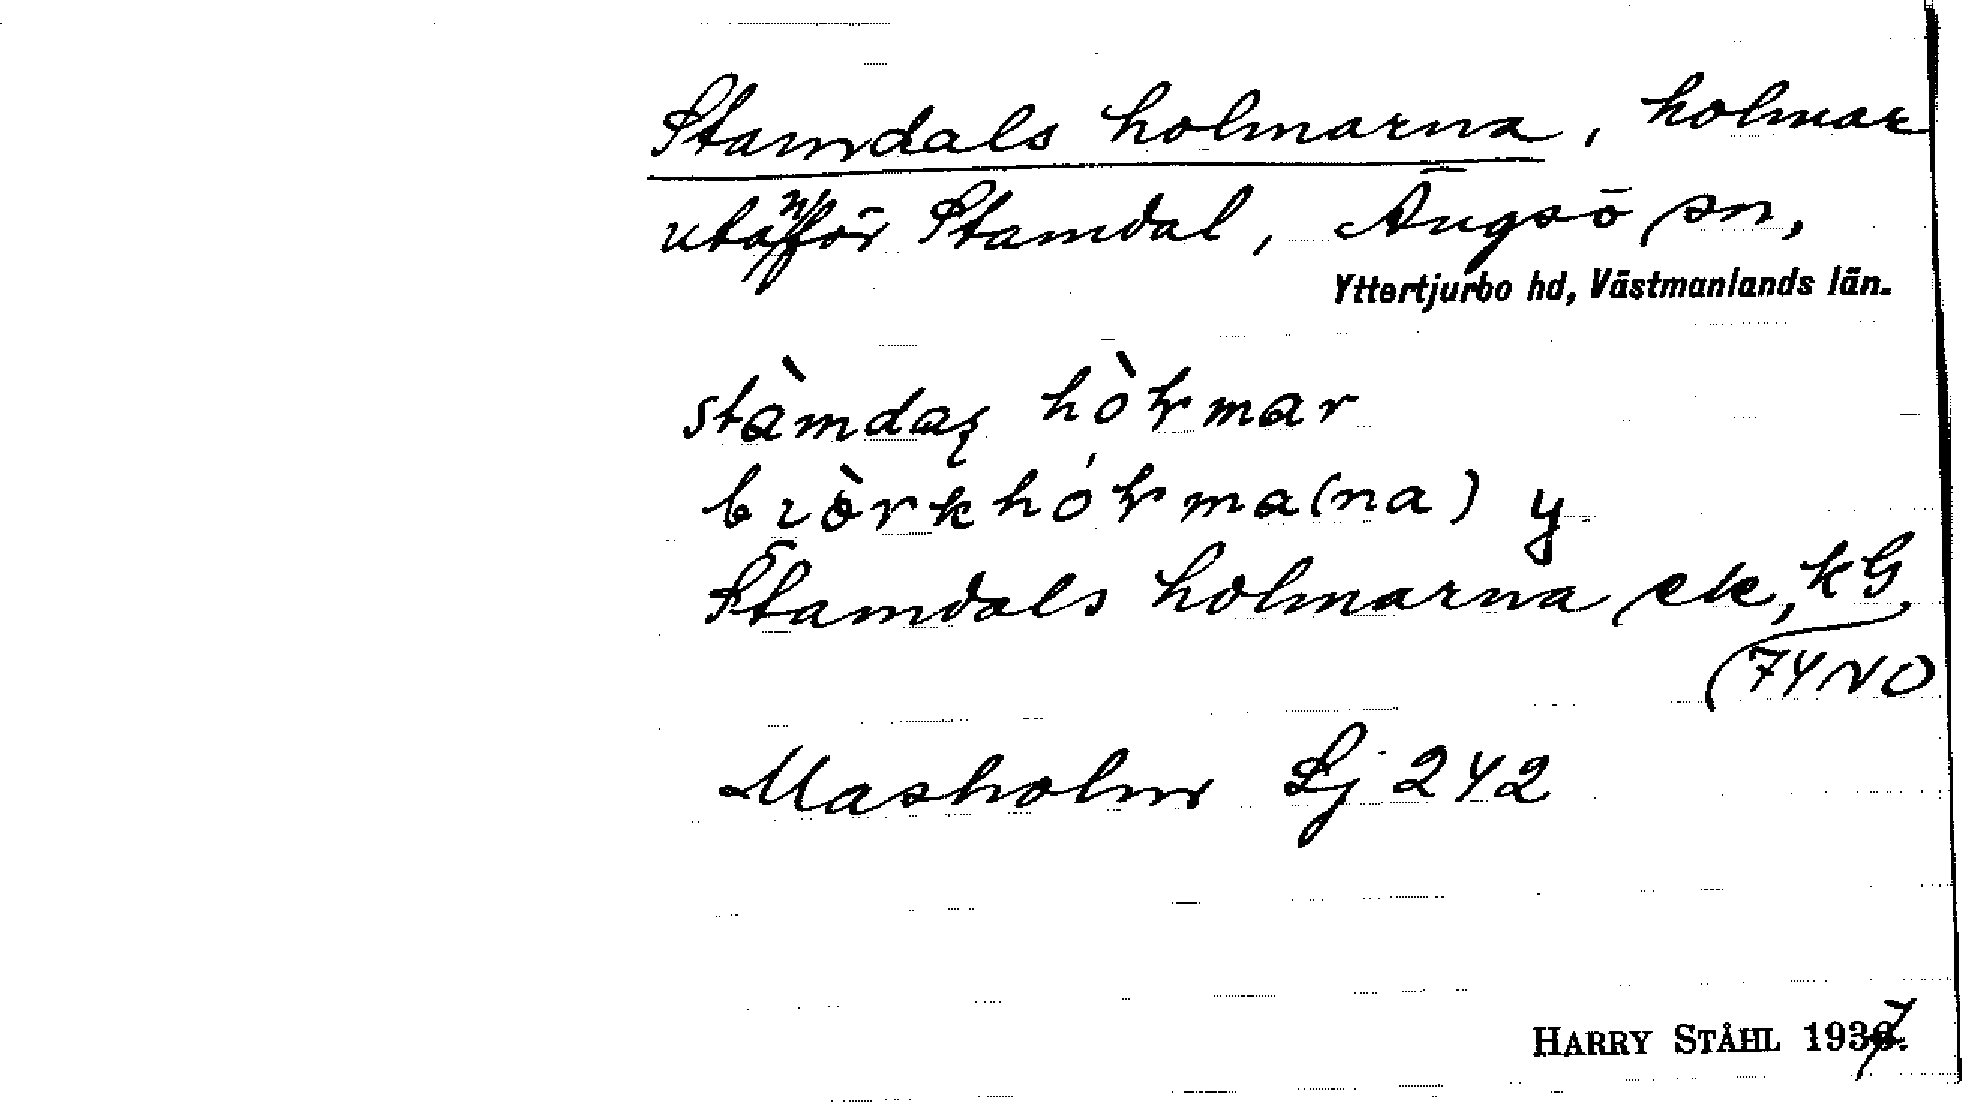 Stamdals holmarna, holmar
utanför Stamdal, Ängsö sn,
Yttertjurbo hd, Västmanlands län.
stàmdaʂ hòɫmar
bɪòrkhóɫma(na) y
Stamdals holmarna ek, kG
(74 NO
Masholm Lj 242
HARRY STÅHL 1937.